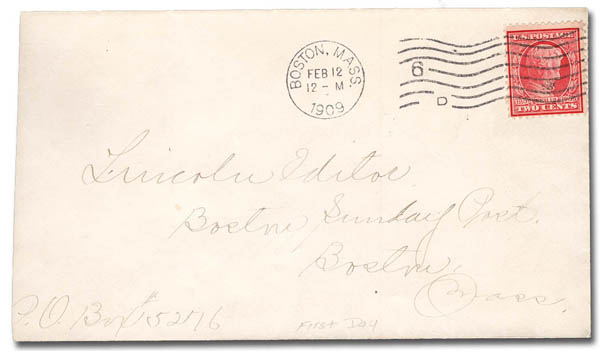 U.S. POSTAGE
BOSTON, MASS.
FEB 12
12 - M
1909
6
D
TWO CENTS
Lincoln Editor
Boston Sunday Post.
Boston,
Mass.
P.O. Box # 5276
First Day